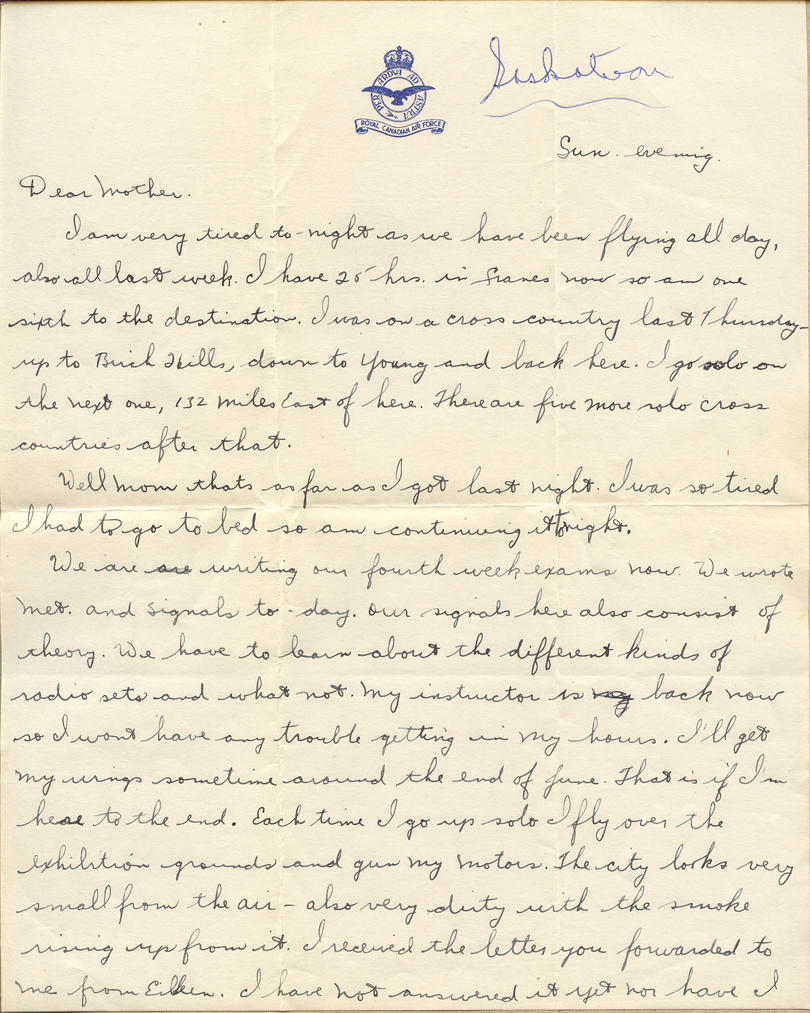 Saskatoon
PER ARDUA AD ASTRA
ROYAL CANADIAN AIR FORCE
Sun. evening.
Dear Mother.
I am very tired to-night as we have been flying all day,
also all last week. I have 25 hrs. in Cranes now so am one
sixth to the destination. I was on a cross country last Thursday-
up to Birch Hills, down to Young and back here. I go solo on
the next one, 132 miles East of here. There are five more solo cross
countries after that.
Well Mom thats as far as I got last night. I was so tired
I had to go to bed so am continuing it to night.
We are are writing our fourth week exams now. We wrote
met. and signals to-day. Our signals here also consist of
theory. We have to learn about the different kinds of
radio sets and what not. My instructor is my back now
so I wont have any trouble getting in my hours. I'll get
my wings sometime around the end of June. That is if I'm
here to the end. Each time I go up solo I fly over the
exhibition grounds and gun my motors. The city looks very
small from the air - also very dirty with the smoke
rising up from it. I received the letter you forwarded to
me from Eileen. I have not answered it yet nor have I